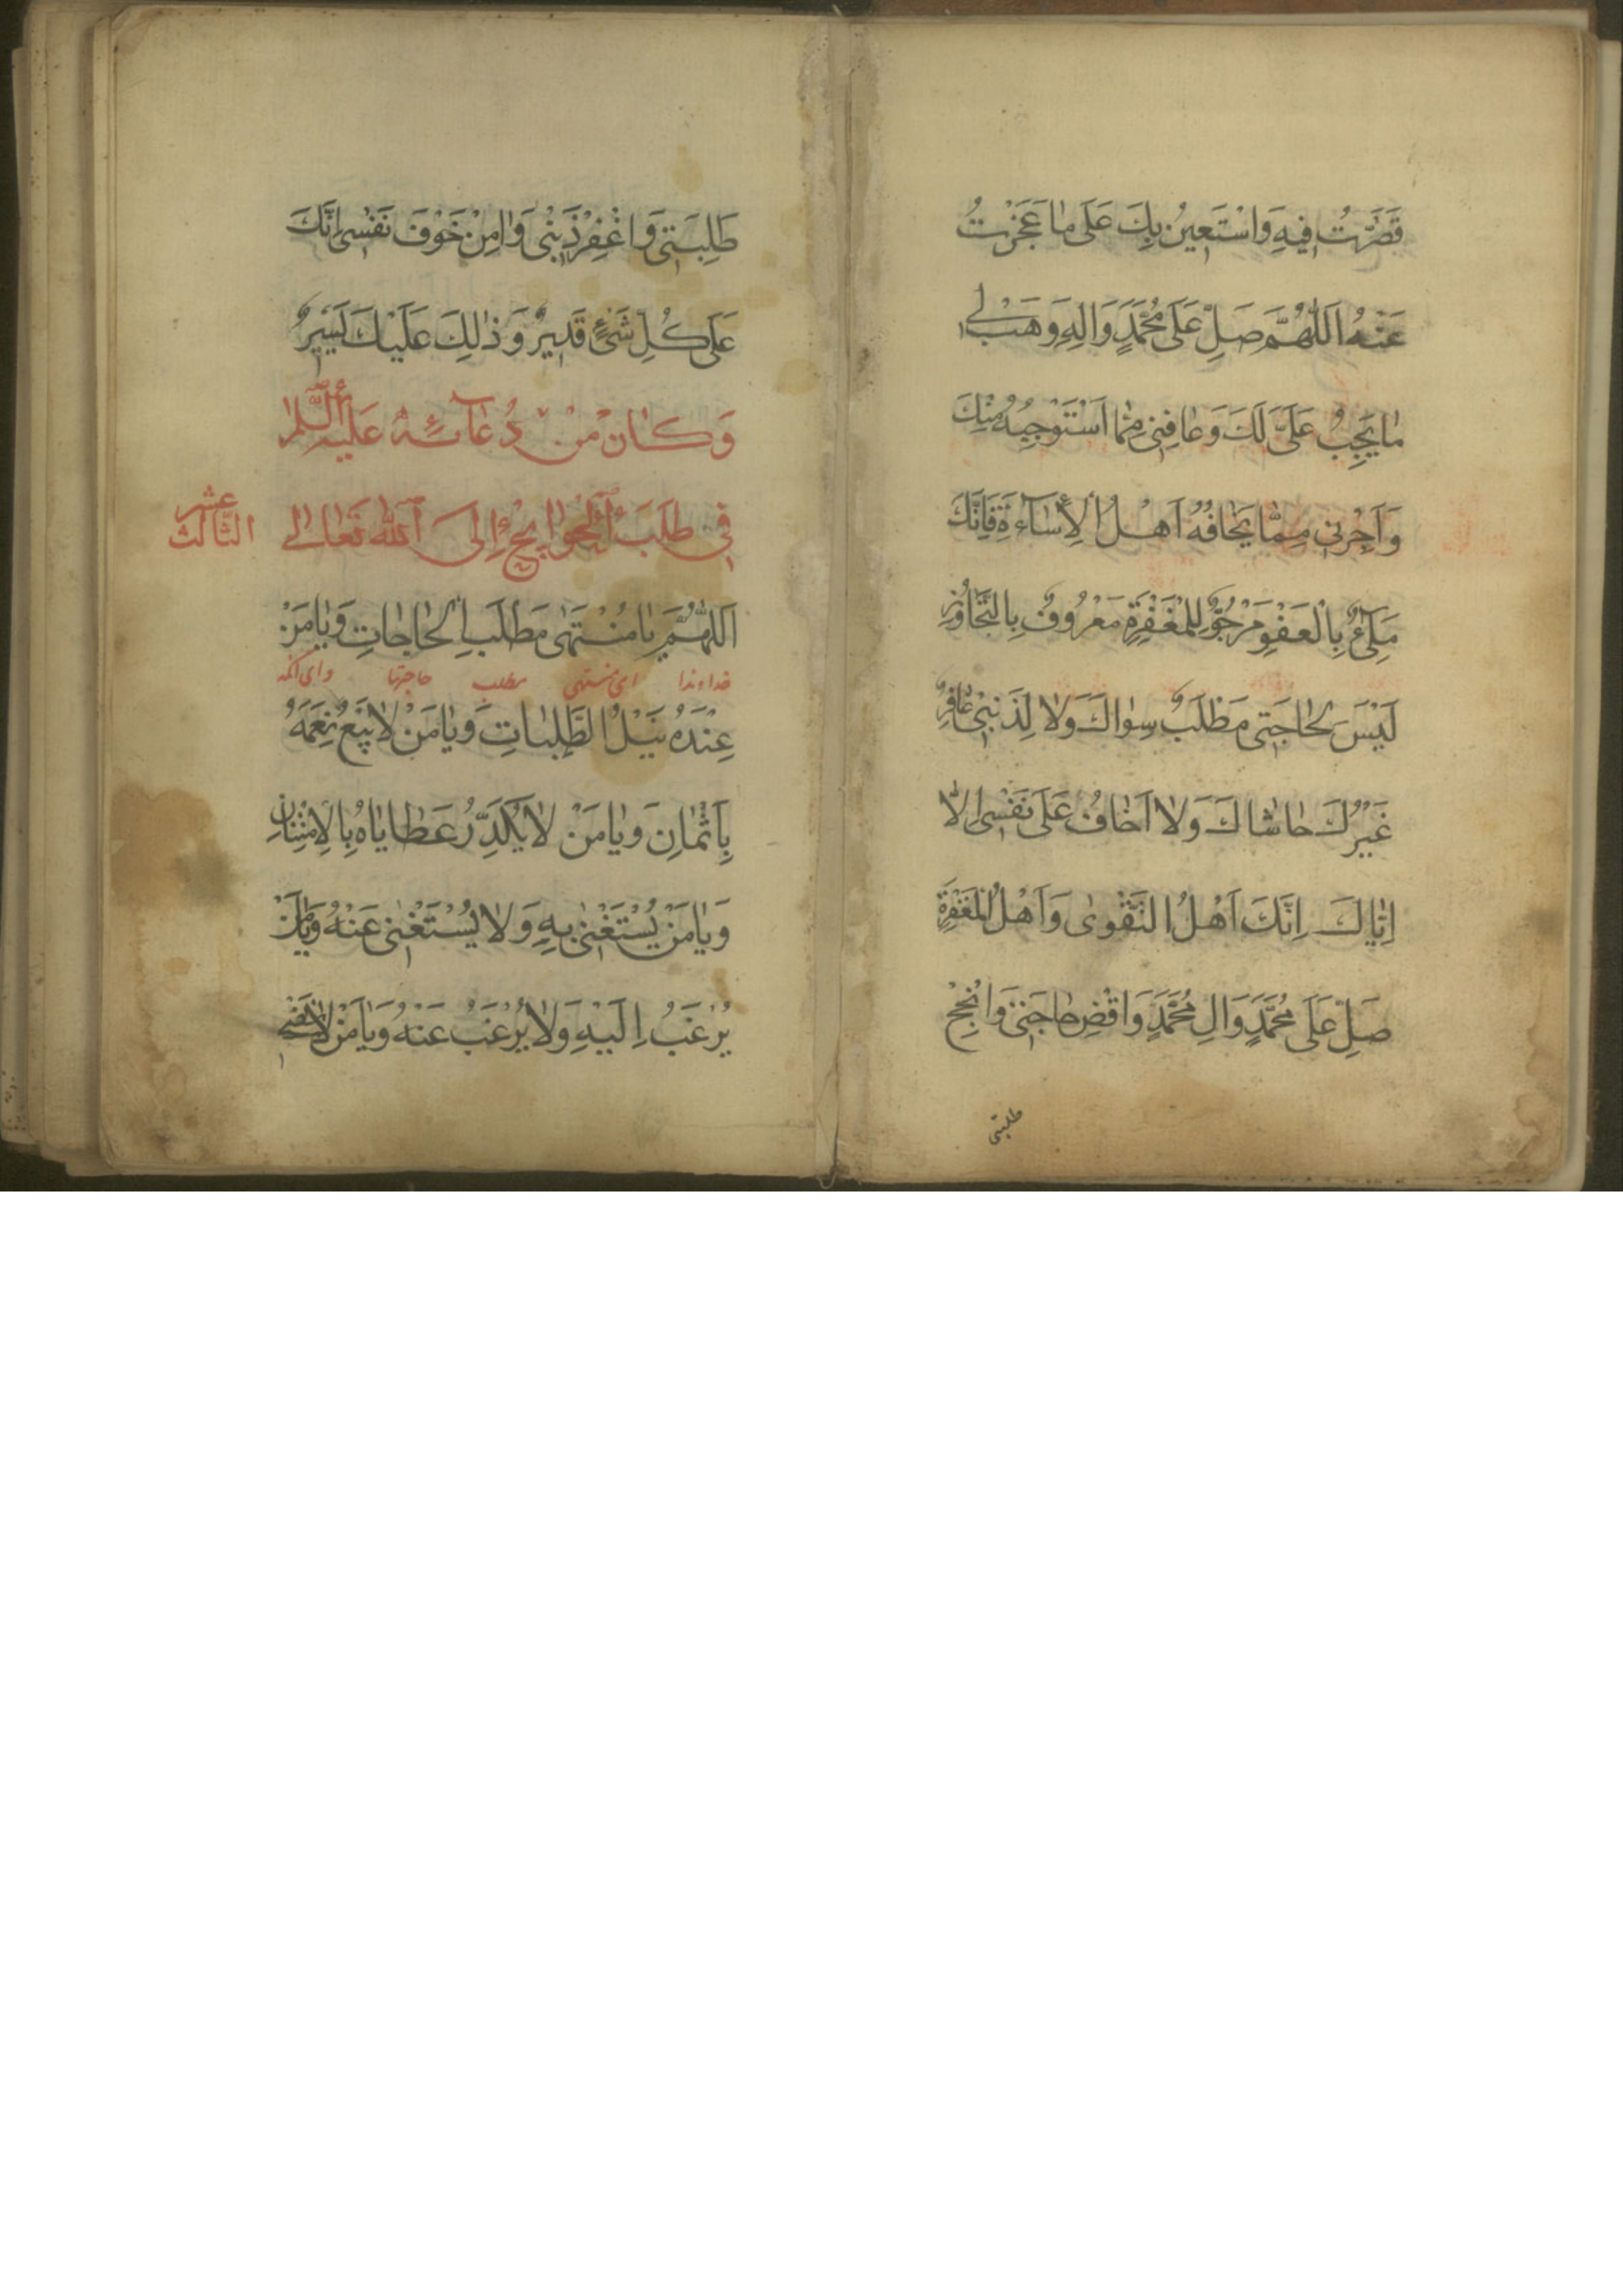 قَصَّرْتُ فِيهِ وَاسْتَعِينُ بِكَ عَلَى مَا عَجَزْتُ
عَنْهُ اَللّٰهُمَّ صَلِّ عَلَى مُحَمَّدٍ وَالِهِ وَهَبْ لِي
مَا يَجِبُ عَلَىَّ لَكَ وَعَافِنِي مِمَّا اَسْتَوْجِبُهُ مِنْكَ
وَاَجِرْنِي مِمَّا يَخَافُهُ اَهْلُ الْأِسَآءَةِ فَاِنَّكَ
مَلِىٌٔ بِالْعَفْوِ مَرْجُوٌّ لِلْمَغْفِرَةِ مَعْرُوفٌ بِالتَّجَاوُزِ
لَيْسَ لِحَاجَتِى مَطْلَبٌ سِوَاكَ وَلَا لِذَنْبِى غَافِرٌ
غَيْرُكَ حَاشَاكَ وَلَا اَخَافُ عَلَى نَفْسِى اِلَّا
اِيَّاكَ اِنَّكَ اَهْلُ التَّقْوىٰ وَاَهْلُ الْمَغْفِرَةِ
صَلِّ عَلَى مُحَمَّدٍ وَالِ مُحَمَّدٍ وَاقْضِ حَاجَتِى وَانْجِحْ
طلبتى
طَلِبَتِى وَاغْفِرْ ذَنْبِى وَامِنْ خَوْفَ نَفْسِى اِنَّكَ
عَلَى كُلِّ شَىْءٍ قَدِيرٌ وَذٰلِكَ عَلَيْكَ يَسِيرٌ
وَكَانَ مِنْ دُعَآئِهٖ عَلَيْهِ السَّلَامُ
فِى طَلَبِ الْحَوَائِجِ إِلَى اللهِ تَعَالٰى
الثالث عشر
اَللّٰهُمَّ يَا مُنْتَهٰى مَطْلَبِ الْحَاجَاتِ وَيَا مَنْ
خداوندا اى منتهى مطلب حاجتها واى آنكه
عِنْدَهُ نَيْلُ الطَّلِبَاتِ وَيَا مَنْ لَا يَبِيعُ نِعَمَهُ
بِاَثْمَانٍ وَيَا مَنْ لَا يُكَدِّرُ عَطَايَاهُ بِالْاِمْتِنَانِ
وَيَا مَنْ يُسْتَغْنٰى بِهِ وَلَا يُسْتَغْنٰى عَنْهُ وَيَا مَنْ
يُرْغَبُ اِلَيْهِ وَلَا يُرْغَبُ عَنْهُ وَيَا مَنْ لَا تُفْنِى